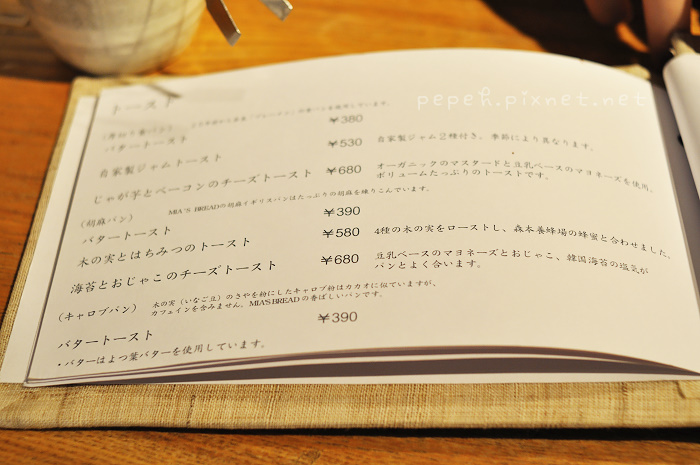 トースト
pepeh.pixnet.net
バタートースト ¥380
自家製ジャムトースト ¥530 自家製ジャム2種付き。季節により異なります。
じゃが芋とベーコンのチーズトースト ¥680 オーガニックのマスタードと豆乳ベースのマヨネーズを使用。
ボリュームたっぷりのトーストです。
(胡麻パン) MIA'S BREADの胡麻イギリスパンはたっぷりの胡麻を練りこんでいます。
バタートースト ¥390
木の実とはちみつのトースト ¥580 4種の木の実をローストし、森本養蜂場の蜂蜜と合わせました。
海苔とおじゃこのチーズトースト ¥680 豆乳ベースのマヨネーズとおじゃこ、韓国海苔の塩気が
パンとよく合います。
(キャロブパン) 木の実(いなご豆)のさやを粉にしたキャロブ粉はカカオに似ていますが、
カフェインを含みません。MIA'S BREADの香ばしいパンです。
バタートースト ¥390
・バターはよつ葉バターを使用しています。